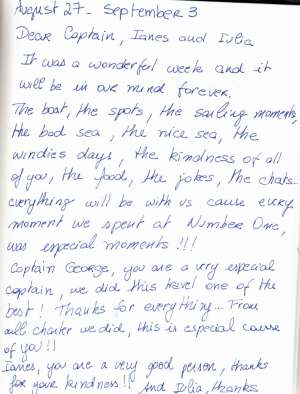 August 27 - September 3
Dear Captain, Ianes and Iulia
It was a wonderful week and it
will be in our mind forever.
The boat, the spots, the sailing moments,
the bad sea, the nice sea, the
windies days, the kindness of all
of you, the food, the jokes, the chats...
everything will be with us cause every
moment we spent at Number One,
was especial moments !!!
Captain George, you are a very especial
captain, we did this travel one of the
best! Thanks for everything... From
all charter we did, this is especial cause
of you!!
Ianes, you are a very good person, thanks
for your kindness!! And Iulia, thanks